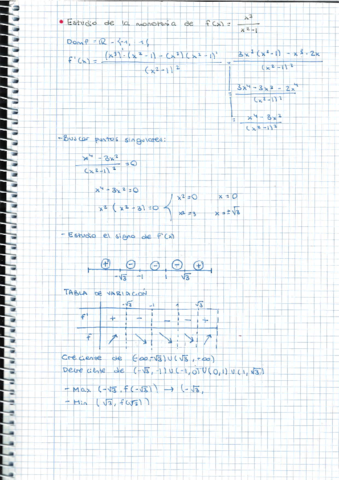 • Estudio de la monotonía de f(x) = x³ / x²-1
Domf = ℝ - {-1, 1}
f'(x) = (x³)' · (x²-1) - (x³)(x²-1)' / (x²-1)² = 3x²(x²-1) - x³·2x / (x²-1)²
= 3x⁴ - 3x² - 2x⁴ / (x²-1)²
= x⁴ - 3x² / (x²-1)²
- Buscar puntos singulares:
x⁴ - 3x² / (x²-1)² = 0
x⁴ - 3x² = 0
x² (x² - 3) = 0 x² = 0 x = 0
x = ±√3
- Estudio el signo de f'(x)
+ - - - +
-√3 -1 1 √3
TABLA DE VARIACIÓN
-√3 -1 √3
f' + - - - - +
f ↗ ↘ ↘ ↘ ↘ ↗
Creciente de (-∞, -√3) ∪ (√3, +∞)
Decreciente de (-√3, -1) ∪ (-1, 0) ∪ (0, 1) ∪ (1, √3)
- Max (-√3, f(-√3)) → (-√3,
- Min (√3, f(√3))